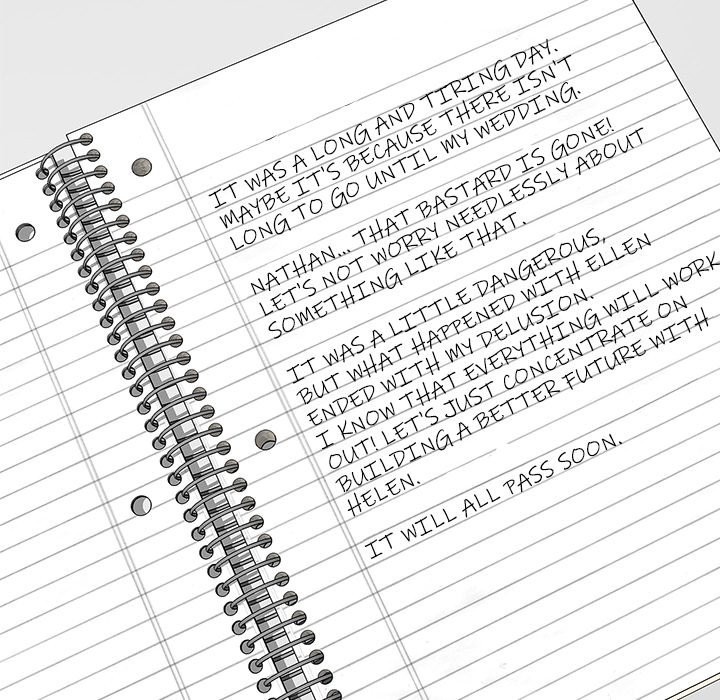 IT WAS A LONG AND TIRING DAY.
MAYBE IT'S BECAUSE THERE ISN'T
LONG TO GO UNTIL MY WEDDING.
NATHAN... THAT BASTARD IS GONE!
LET'S NOT WORRY NEEDLESSLY ABOUT
SOMETHING LIKE THAT.
IT WAS A LITTLE DANGEROUS,
BUT WHAT HAPPENED WITH ELLEN
ENDED WITH MY DELUSION.
I KNOW THAT EVERYTHING WILL WORK
OUT! LET'S JUST CONCENTRATE ON
BUILDING A BETTER FUTURE WITH
HELEN.
IT WILL ALL PASS SOON.